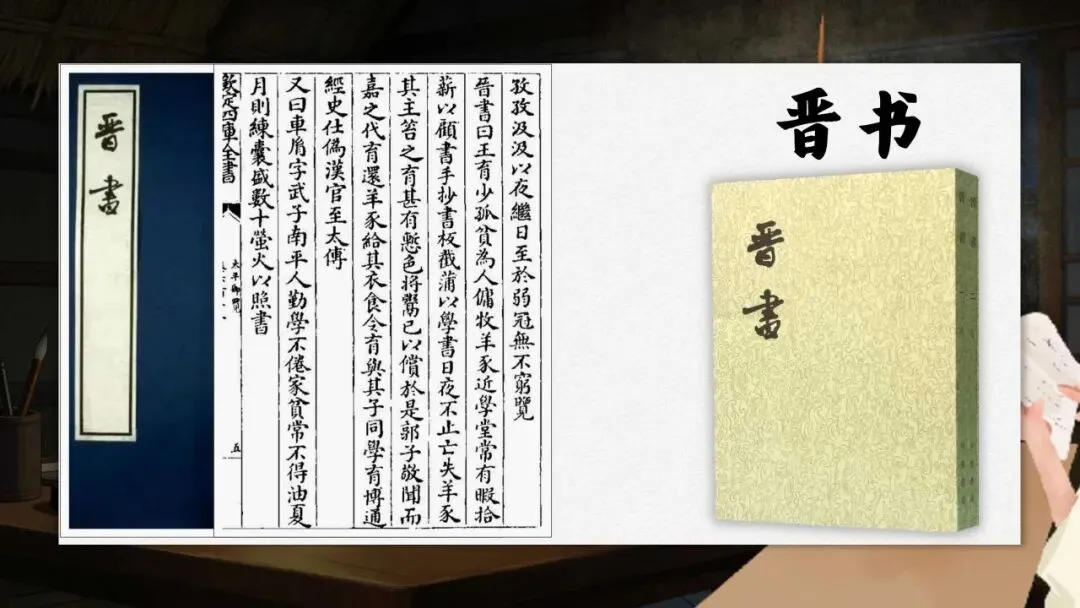 晋書
孜孜汲汲以夜繼日至於弱冠無不窮覽
晉書曰王育少孤貧為人傭牧羊豕近學堂常有暇拾
薪以顧書手抄書板截蒲以學書日夜不止亡失羊豕
其主笞之育甚有慙色將鬻己以償於是郭子敬聞而
嘉之代育還羊豕給其衣食令育與其子同學育博通
經史仕偽漢官至太傅
又曰車胤字武子南平人勤學不倦家貧常不得油夏
月則練囊盛數十螢火以照書
欽定四庫全書
太平御覽
五
晋书
晋書